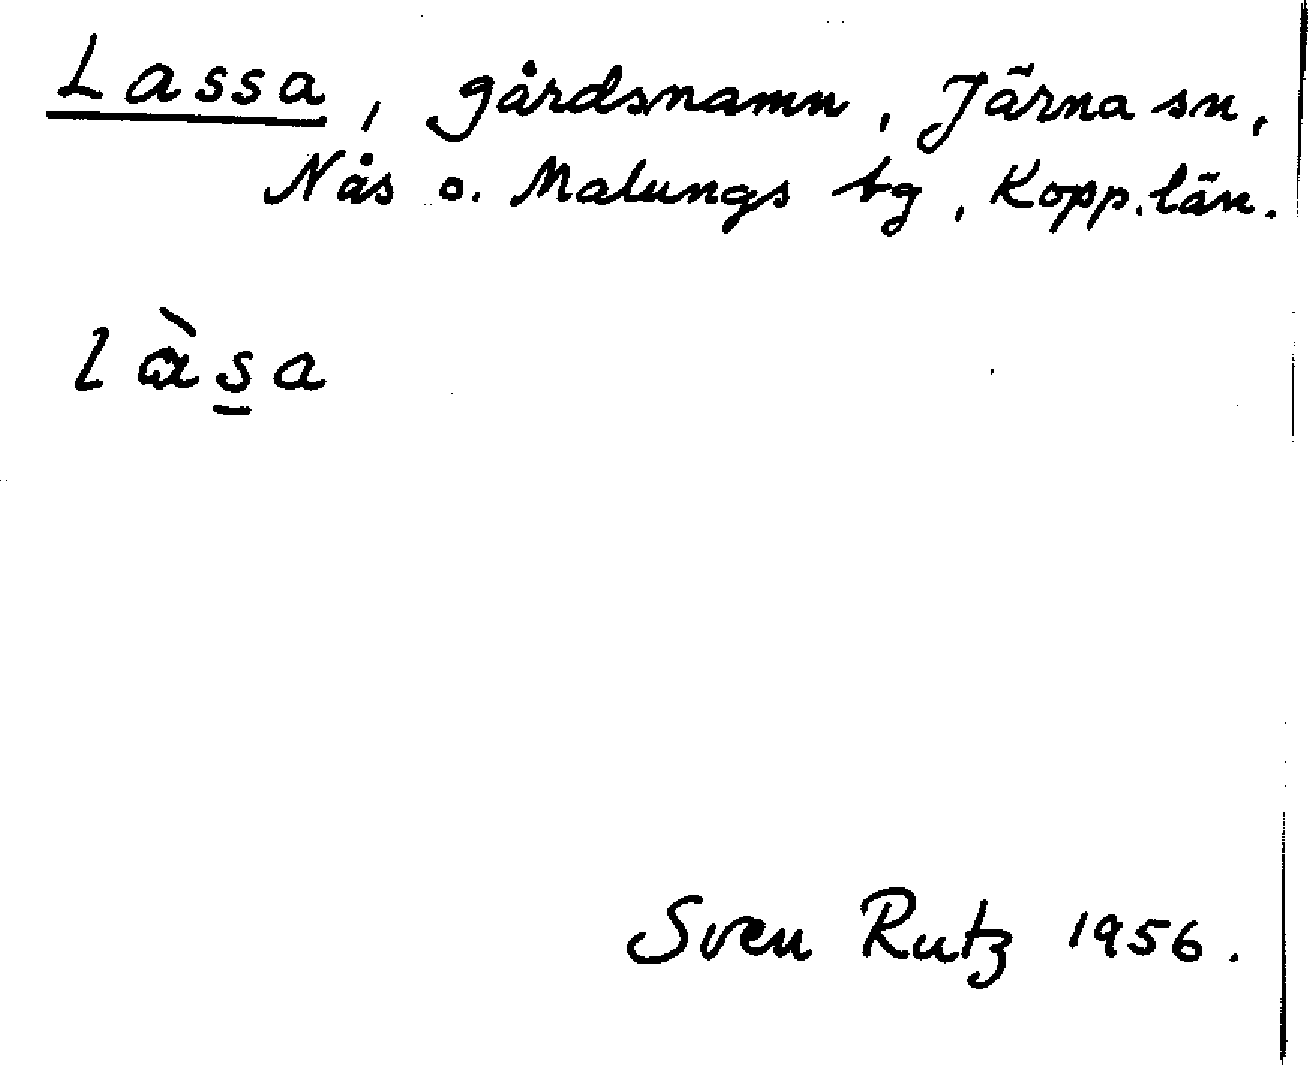 Lassa, gårdsnamn, Järna sn,
Nås o. Malungs tg, Kopp. län.
làs̲a
Sven Rutz 1956.